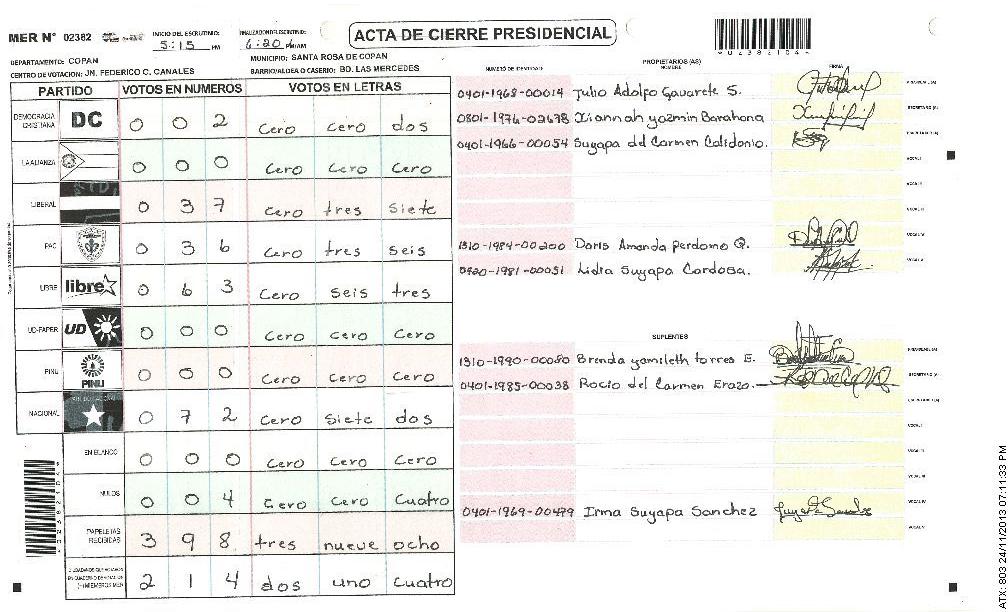 MER Nº 02382
INICIO DEL ESCRUTINIO: 5:15 PM
FINALIZACION DEL ESCRUTINIO: 6:20 PM/AM
ACTA DE CIERRE PRESIDENCIAL
DEPARTAMENTO: COPAN
MUNICIPIO: SANTA ROSA DE COPAN
CENTRO DE VOTACION: JN. FEDERICO C. CANALES
BARRIO/ALDEA O CASERIO: BO. LAS MERCEDES
PARTIDO VOTOS EN NUMEROS VOTOS EN LETRAS
DEMOCRACIA CRISTIANA DC 0 0 2 cero cero dos
LA ALIANZA 0 0 0 cero cero cero
LIBERAL 0 3 7 cero tres siete
PAC 0 3 6 cero tres seis
LIBRE libre 0 6 3 cero seis tres
UD-FAPER UD 0 0 0 cero cero cero
PINU PINU 0 0 0 cero cero cero
NACIONAL 0 7 2 cero siete dos
EN BLANCO 0 0 0 cero cero cero
NULOS 0 0 4 cero cero cuatro
PAPELETAS RECIBIDAS 3 9 8 tres nueve ocho
CIUDADANOS QUE VOTARON EN CUADERNO DE VOTACION (+) MIEMBROS MER 2 1 4 dos uno cuatro
PROPIETARIOS (AS)
NUMERO DE IDENTIDAD NOMBRE FIRMA
0401-1968-00014 Julio Adolfo Gavarete S. PRESIDENTE (A)
0801-1976-02678 Xiannah yazmin Barahona SECRETARIO (A)
0401-1966-00054 Suyapa del Carmen Calidonio. ESCRUTADOR (A)
VOCAL I
VOCAL II
VOCAL III
1310-1984-00200 Doris Amanda perdomo Q. VOCAL IV
0420-1981-00051 Lidia Suyapa Cardosa. VOCAL V
SUPLENTES
1310-1990-00080 Brenda yamileth torres E. PRESIDENTE (A)
0401-1985-00038 Rocio del Carmen Erazo. SECRETARIO (A)
ESCRUTADOR (A)
VOCAL I
VOCAL II
VOCAL III
0401-1969-00479 Irma Suyapa Sanchez VOCAL IV
VOCAL V
ATX: 803 24/11/2013 07:11:33 PM